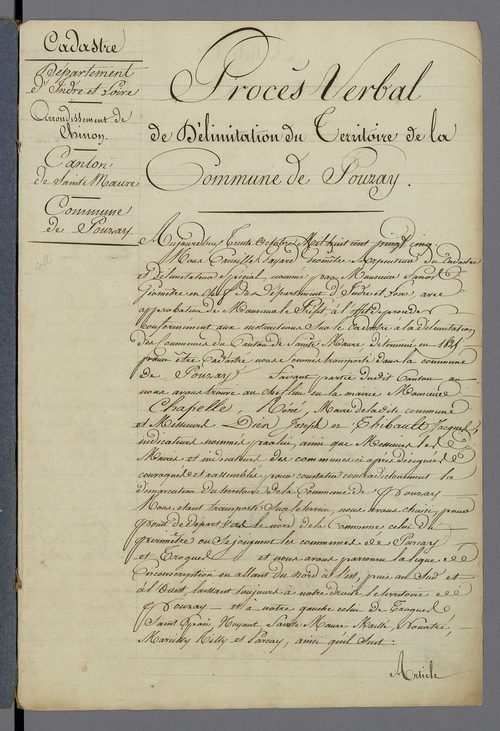 Cadastre
Département
d'Indre et Loire
Arrondissement de
Chinon.
Canton
de Sainte Maure
Commune
de Pouzay.
Procès Verbal
de Délimitation du Territoire de la
Commune de Pouzay.
Aujourd'hui trente Octobre Mil huit cent vingt cinq
Nous Camille Géomètre du Cadastre
et Délimitateur Spécial, nommé par Monsieur
Géomètre en chef du département d'Indre et Loire, avec
approbation de Monsieur le Préfet, à l'effet de procéder
conformément aux instructions Sur le Cadastre à la délimitation
des Communes du Canton de Sainte Maure en 1825
pour être Cadastré nous sommes transporté dans la commune
de Pouzay faisant partie dudit Canton où
nous avons trouvé au chef lieu en la mairie Monsieur
Chapelle Réné, Maire de ladite commune
et Messieurs Dien Joseph et Thibault Jacques
indicateurs nommés par lui, ainsi que Messieurs les
Maires et indicateurs des communes ci après désignées
convoqués et rassemblés pour constater contradictoirement la
démarcation du territoire de la Commune de Pouzay
Nous étant transportés Sur le terrein, nous avons choisi pour
point de départ vers le nord de la Commune celui du
périmètre où Se joignent les communes de Parçay
et Trogues et nous avons parcouru la ligne de
Circonscription en allant du Nord à l'est, puis au Sud et
à l'Ouest, laissant toujours à notre droite le territoire de
Pouzay et à notre gauche celui de Trogues
Saint Epain, Noyant, Sainte Maure, Maillé, Nouatre,
Marcilly, Rilly et Parçay, ainsi qu'il Suit:
Article